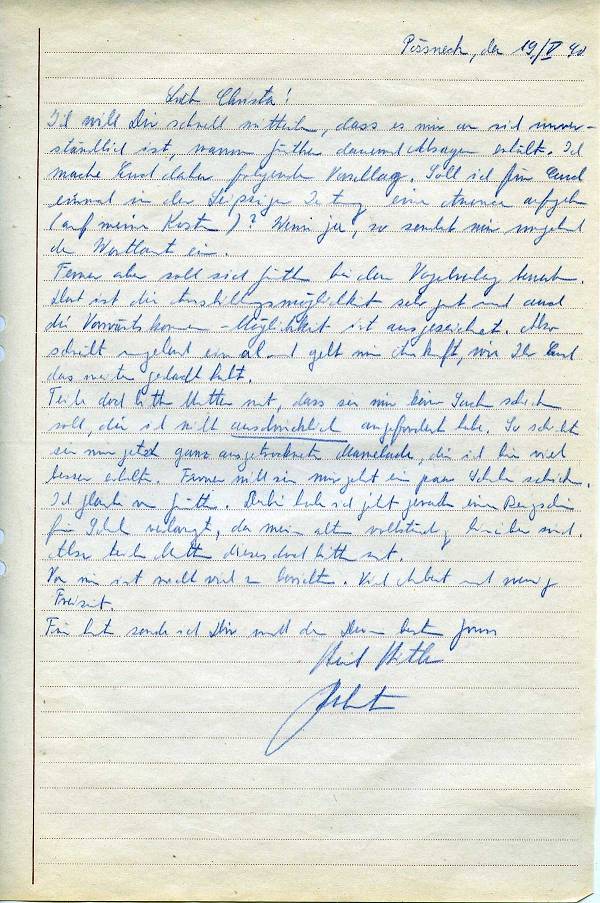 Pössneck, den 19./V 40
Liebe Christa!
Ich will Dir schnell mitteilen, dass es mir an sich unver-
ständlich ist, warum Günther dauernd Absagen erhält. Ich
mache Euch daher folgenden Vorschlag. Soll ich für Euch
einmal in der Leipziger Zeitung eine Annonce aufgeben
(auf meine Kosten)? Wenn ja, so sendet mir umgehend
den Wortlaut ein.
Ferner aber soll sich Günther bei dem
Dort ist die Ausbildungsmöglichkeit sehr gut und auch
die Vorwärtskommen-Möglichkeit ist ausgezeichnet. Also
schreibt umgehend einmal und gebt mir Auskunft, wie Ihr Euch
das weiter gedacht habt.
Teile doch bitte Mutter mit, dass sie mir keine Sachen schicken
soll, die ich nicht ausdrücklich angefordert habe. So schickt
sie mir jetzt ganz ausgetrocknete Marmelade, die ich hier viel
besser erhalte. Ferner will sie mir jetzt ein paar Schuhe schicken.
Ich glaube von Günther. Dabei habe ich jetzt gerade einen Bezugschein
für Schuhe verlangt, da meine alten vollständig hinüber sind.
Also teile Mutter dieses doch bitte mit.
Von mir ist nicht viel zu berichten. Viel Arbeit und wenig
Freizeit.
Für heute sende ich Dir und den Deinen beste Grüsse
Heil Hitler